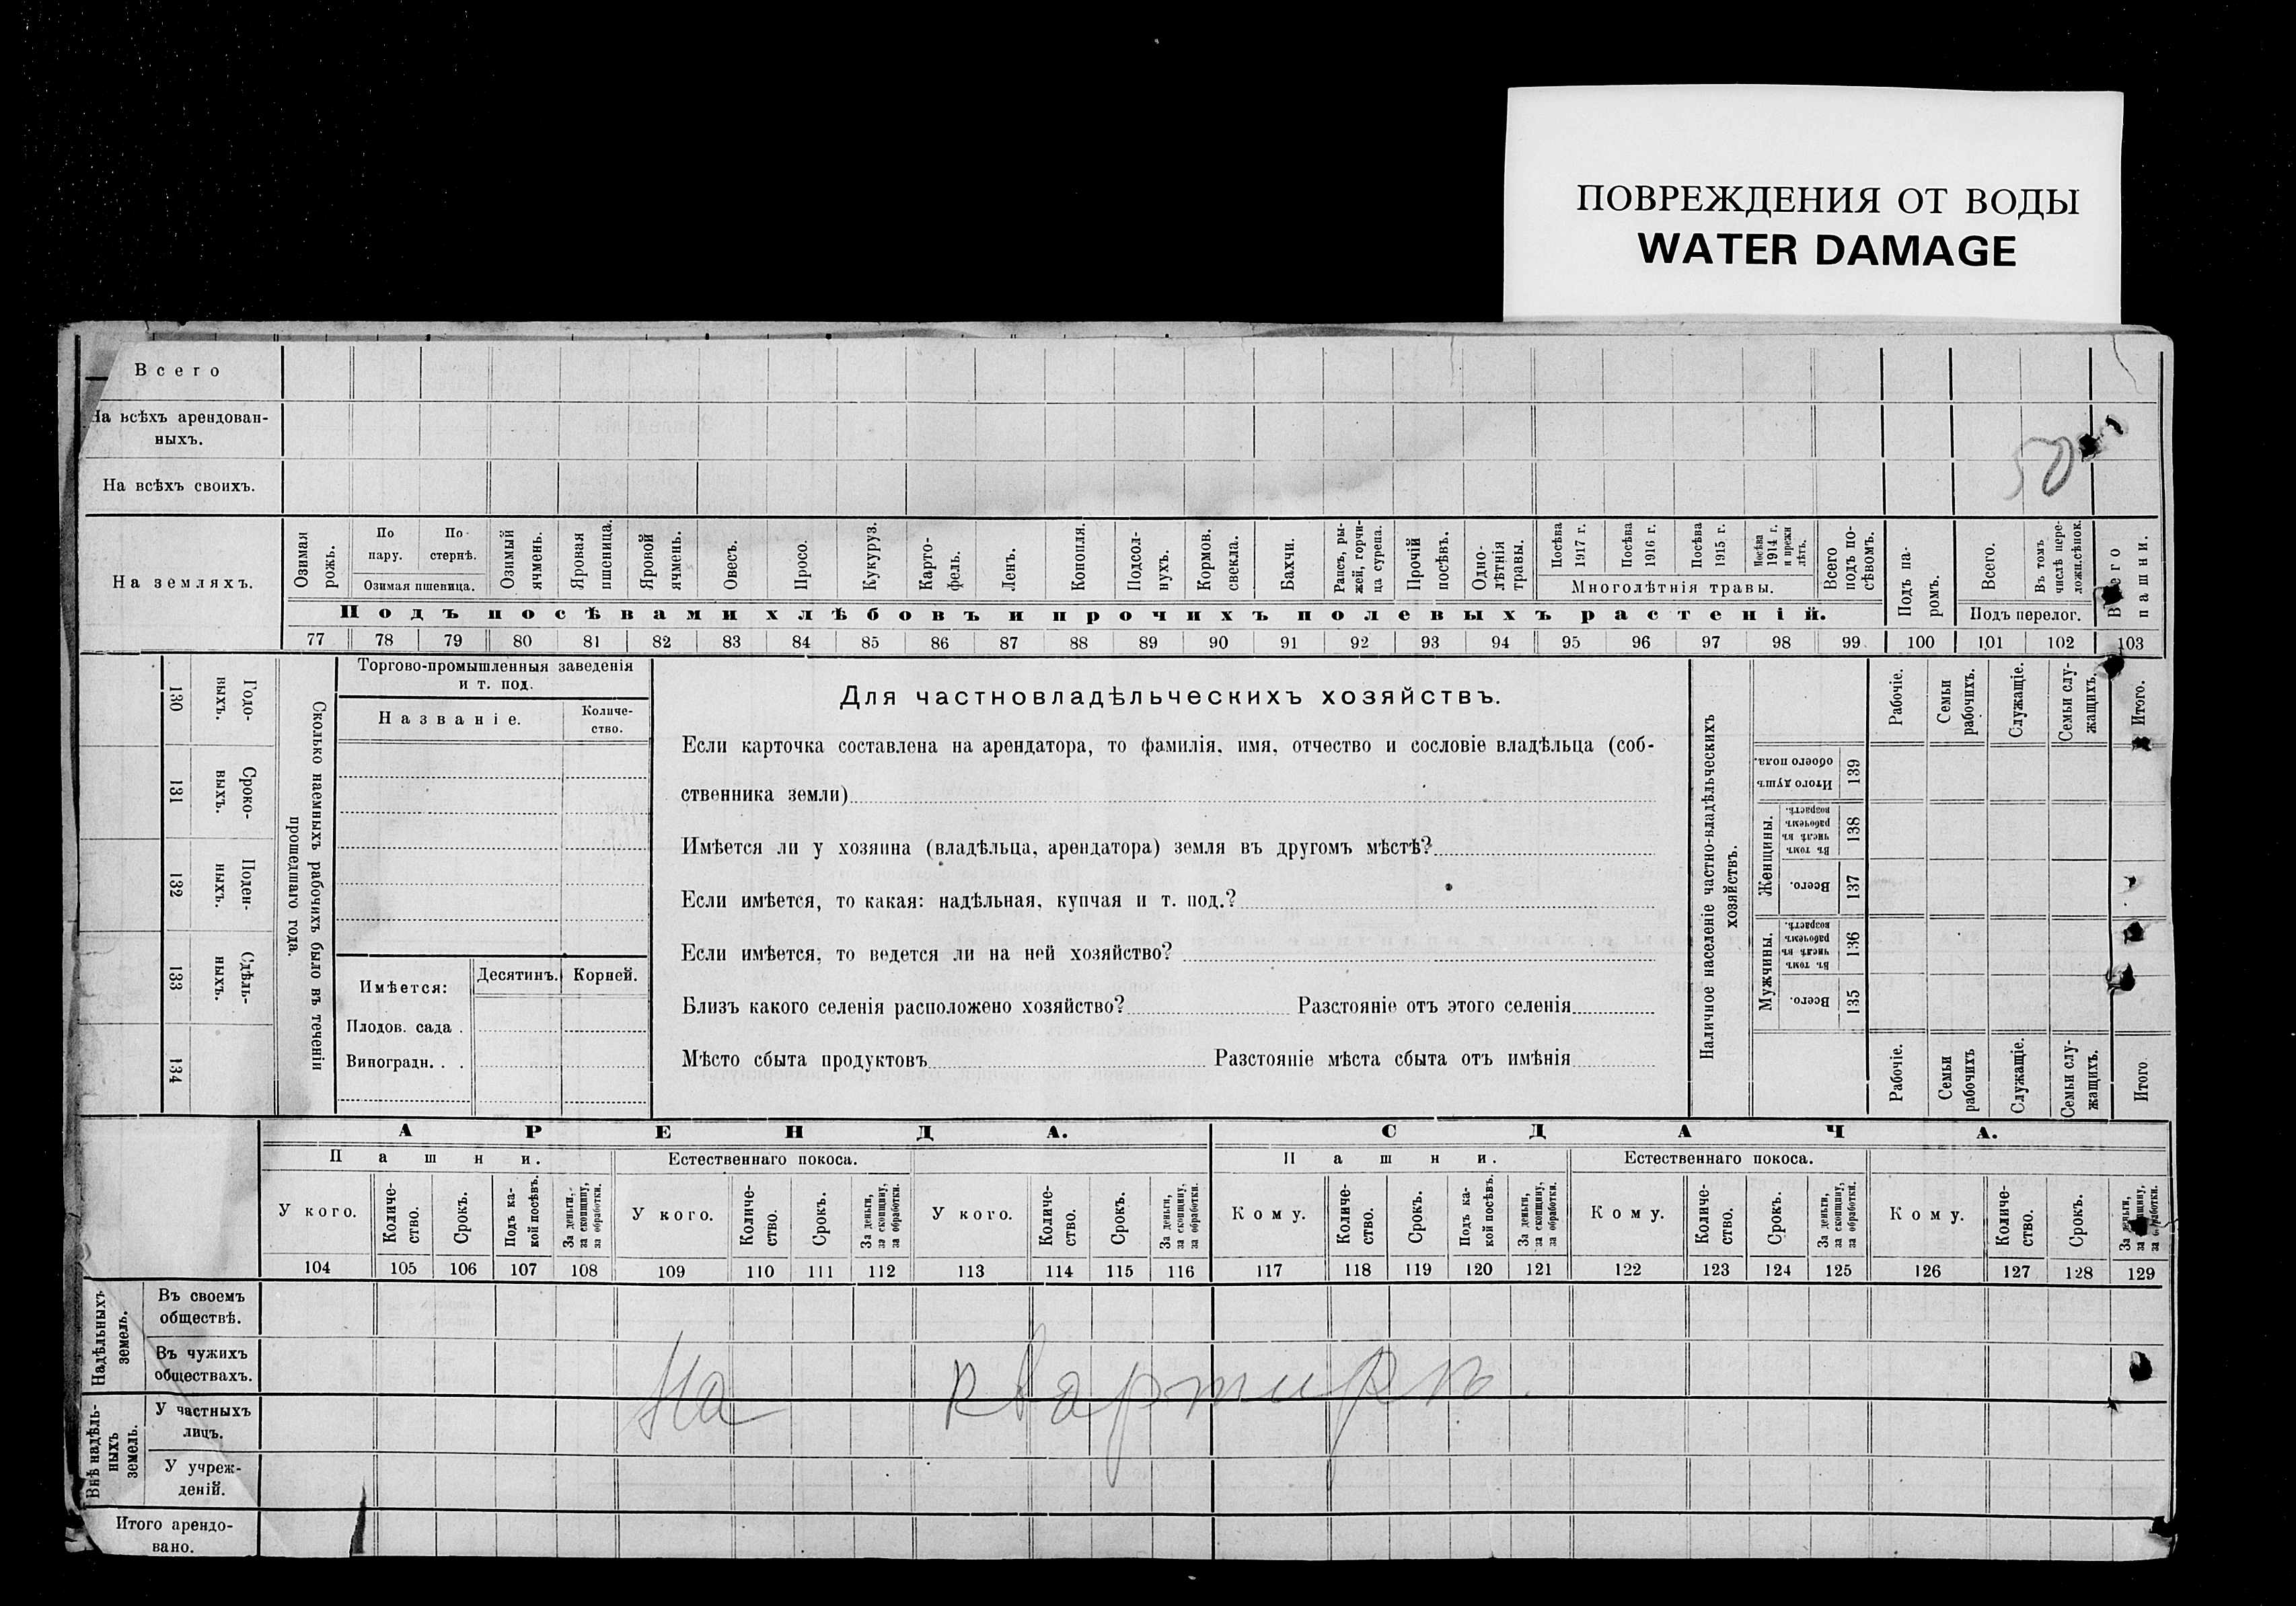 ПОВРЕЖДЕНИЯ ОТ ВОДЫ
WATER DAMAGE
Всего
На всѣхъ арендован-
ныхъ.
50
На всѣхъ своихъ.
На земляхъ.
Озимая рожь.
По пару.
По стернѣ.
Озимая пшеница.
Озимый ячмень.
Яровая пшеница.
Яровой ячмень.
Овесъ.
Просо.
Кукуруз.
Карто-
фель.
Ленъ.
Конопля.
Подсол-
нухъ.
Кормов. свекла.
Бахчи.
Рапсъ, ры-
жей, горчи-
ца сурепа.
Прочій посѣвъ.
Одно-
лѣтнія травы.
Посѣва 1917 г.
Посѣва 1916 г.
Посѣва 1915 г.
Посѣва 1914 г. и прежн лѣтъ.
Многолѣтнія травы.
Всего подъ по-
сѣвомъ.
Подъ па-
ромъ.
Всего.
Въ томъ числѣ пере-
ложн.сѣнок.
Подъ перелог.
Всего пашни.
Подъ посѣвами хлѣбовъ и прочихъ полевыхъ растеній.
77 78 79 80 81 82 83 84 85 86 87 88 89 90 91 92 93 94 95 96 97 98 99. 100 101 102 103
130 Годо-
выхъ.
131 Сроко-
выхъ.
132 Поден-
ныхъ.
133 Сдѣль-
ныхъ.
134
Сколько наемныхъ рабочихъ было въ теченіи
прошедшаго года.
Торгово-промышленныя заведенія
и т. под.
Названіе.
Количе-
ство.
Имѣется:
Десятинъ.
Корней.
Плодов. сада .
Виноградн. . .
Для частновладѣльческихъ хозяйствъ.
Если карточка составлена на арендатора, то фамилія, имя, отчество и сословіе владѣльца (соб-
ственника земли)
Имѣется ли у хозяина (владѣльца, арендатора) земля въ другомъ мѣстѣ?
Если имѣется, то какая: надѣльная, купчая и т. под.?
Если имѣется, то ведется ли на ней хозяйство?
Близъ какого селенія расположено хозяйство? Разстояніе отъ этого селенія
Мѣсто сбыта продуктовъ Разстояніе мѣста сбыта отъ имѣнія
Наличное населеніе частно-владѣльческихъ
хозяйствъ.
Рабочіе.
Семьи рабочихъ.
Служащіе.
Семьи слу-
жащихъ.
Итого.
Итого душъ обоего пола. 139
Женщины.
Въ томъ числѣ въ рабочемъ возрастѣ. 138
Всего. 137
Мужчины.
Въ томъ числѣ въ рабочемъ возрастѣ. 136
Всего. 135
Рабочіе.
Семьи рабочихъ
Служащіе.
Семьи слу-
жащихъ.
Итого
АРЕНДА.
СДАЧА.
Пашни.
Естественнаго покоса.
Пашни.
Естественнаго покоса.
У кого.
Количе-
ство.
Срокъ.
Подъ ка-
кой посѣвъ.
За деньги, за скопщину, за обработки.
У кого.
Количе-
ство.
Срокъ.
За деньги, за скопщину, за обработки.
У кого.
Количе-
ство.
Срокъ.
За деньги, за скопщину, за обработки.
Кому.
Количе-
ство.
Срокъ.
Подъ ка-
кой посѣвъ.
За деньги, за скопщину, за обработки.
Кому.
Количе-
ство.
Срокъ.
За деньги, за скопщину, за обработки.
Кому.
Количе-
ство.
Срокъ.
За деньги,
104 105 106 107 108 109 110 111 112 113 114 115 116 117 118 119 120 121 122 123 124 125 126 127 128 129
Надѣльныхъ земель.
Въ своемъ
обществѣ.
Въ чужихъ
обществахъ.
На квартирѣ.
Внѣ надѣль-
ныхъ земель.
У частныхъ
лицъ.
У учреж-
деній.
Итого арендо-
вано.